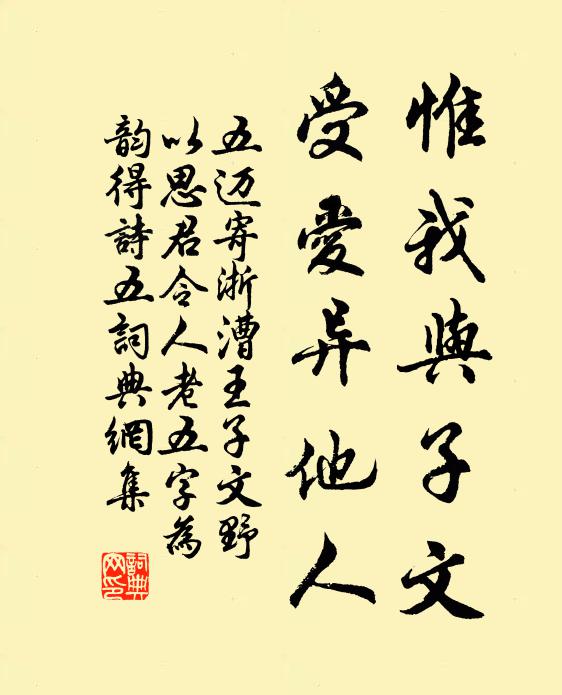 惟我與子文
受愛异他人
五迈寄浙漕王子文野
以思君令人老五字為
韵得詩五詞典網集
詞典
网印